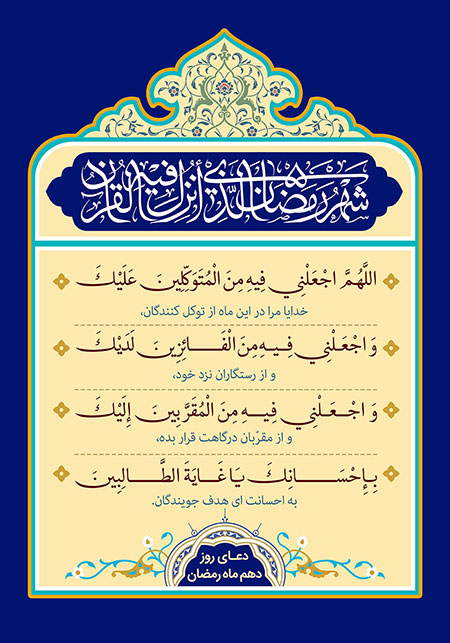 شهر رمضان الذي أنزل فيه القرآن
اللَّهُمَّ اجْعَلْنِي فِيهِ مِنَ الْمُتَوَكِّلِينَ عَلَيْكَ
خدایا مرا در این ماه از توکل کنندگان،
وَ اجْعَلْنِي فِيهِ مِنَ الْفَائِزِينَ لَدَيْكَ
و از رستگاران نزد خود،
وَ اجْعَلْنِي فِيهِ مِنَ الْمُقَرَّبِينَ إِلَيْكَ
و از مقرّبان درگاهت قرار بده،
بِإِحْسَانِكَ يَا غَايَةَ الطَّالِبِينَ
به احسانت ای هدف جویندگان.
دعـای روز
دهم ماه رمضان